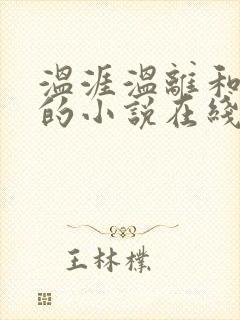 温涯温離和
的小説在綫
王林樸